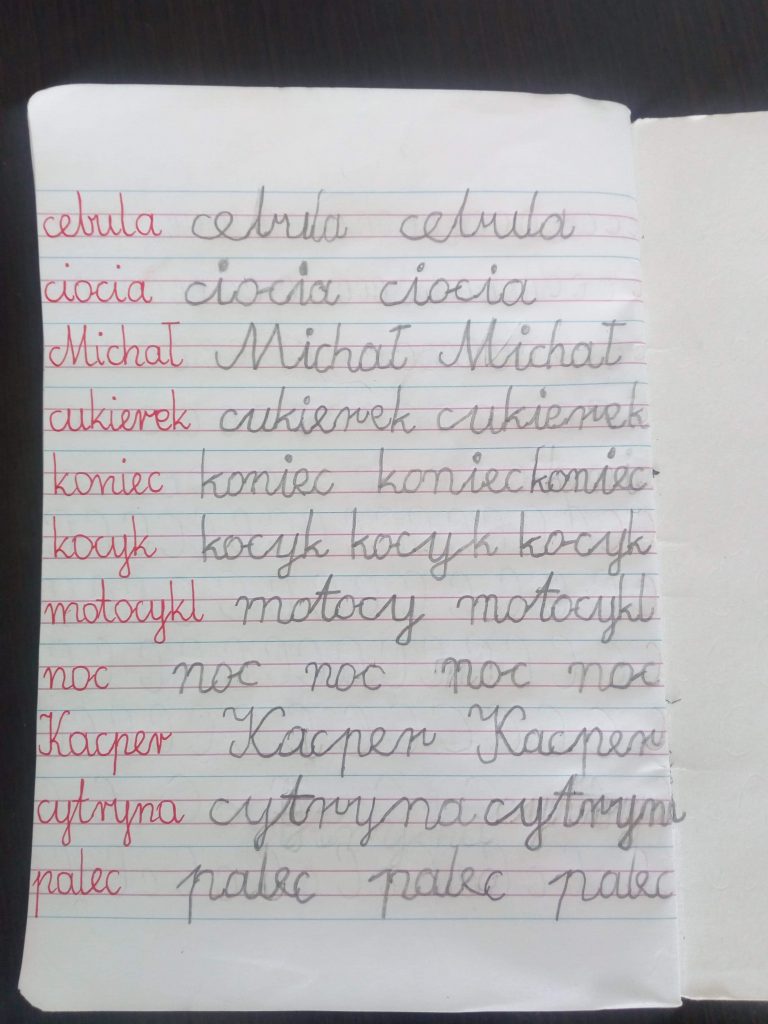 cebula cebula cebula
ciocia ciocia ciocia
Michał Michał Michał
cukierek cukierek cukierek
koniec koniec koniec koniec
kocyk kocyk kocyk kocyk
motocykl motocy motocykl
noc noc noc noc noc
Kacper Kacper Kacper
cytryna cytryna cytryna
palec palec palec palec